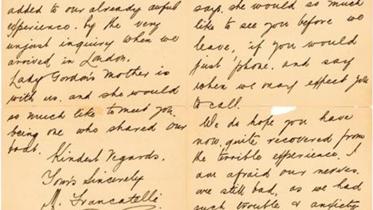 says, she would so much
like to see you before we
leave, if you would
just 'phone, and say
when we may expect you
to call.
We do hope you have
now, quite recovered from
the terrible experience. I
am afraid our nerves
are still bad, as we had
such trouble & anxiety
added to our already awful
experience, by the very
unjust inquiry when we
arrived in London.
Lady Gordon's Mother is
with us, and she would
so much like to meet you,
being one who shared our
boat.
Kindest Regards,
Yours Sincerely
M. Francatelli